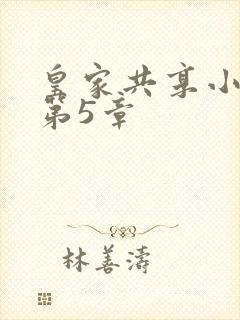 皇家共享小
第5章
林善濤